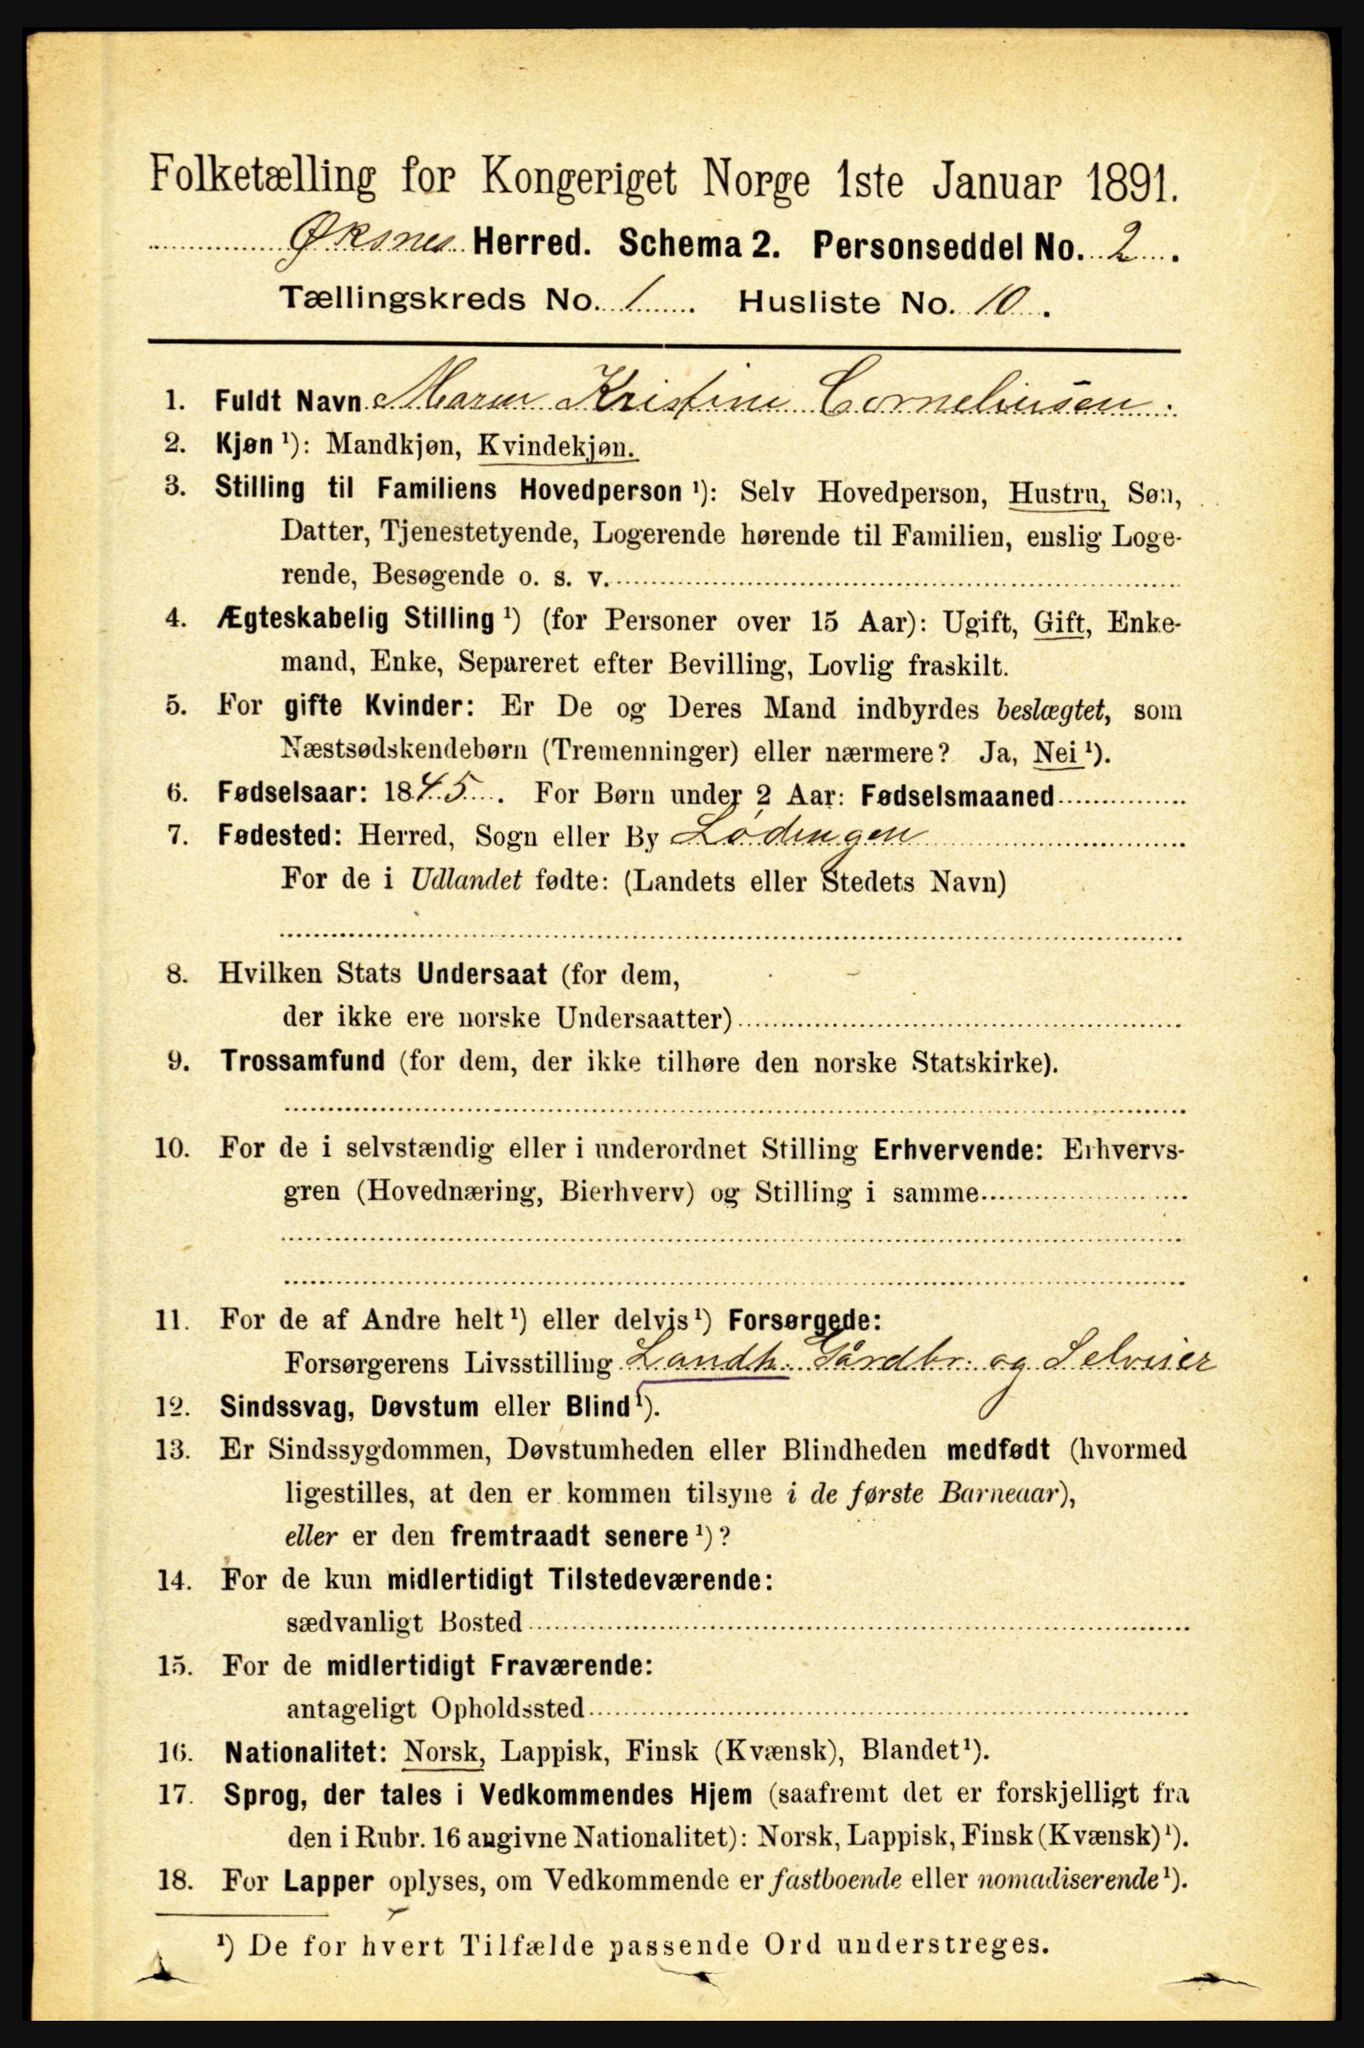 Folketælling for Kongeriget Norge 1ste Januar 1891.
Øksnes Herred. Schema 2. Personseddel No. 2.
Tællingskreds No. 1. Husliste No. 10.
1. Fuldt Navn Maren Kristine Corneliusen.
2. Kjøn ¹): Mandkjøn, Kvindekjøn.
3. Stilling til Familiens Hovedperson ¹): Selv Hovedperson, Hustru, Søn,
Datter, Tjenestetyende, Logerende hørende til Familien, enslig Loge-
rende, Besøgende o. s. v.
4. Ægteskabelig Stilling ¹) (for Personer over 15 Aar): Ugift, Gift, Enke-
mand, Enke, Separeret efter Bevilling, Lovlig fraskilt.
5. For gifte Kvinder: Er De og Deres Mand indbyrdes beslægtet, som
Næstsødskendebørn (Tremenninger) eller nærmere? Ja, Nei ¹).
6. Fødselsaar: 1845. For Børn under 2 Aar: Fødselsmaaned
7. Fødested: Herred, Sogn eller By Lødingen
For de i Udlandet fødte: (Landets eller Stedets Navn)
8. Hvilken Stats Undersaat (for dem,
der ikke ere norske Undersaatter)
9. Trossamfund (for dem, der ikke tilhøre den norske Statskirke).
10. For de i selvstændig eller i underordnet Stilling Erhvervende: Erhvervs-
gren (Hovednæring, Bierhverv) og Stilling i samme
11. For de af Andre helt ¹) eller delvis ¹) Forsørgede:
Forsørgerens Livsstilling Landh. Gårdbr. og Selveier
12. Sindssvag, Døvstum eller Blind ¹).
13. Er Sindssygdommen, Døvstumheden eller Blindheden medfødt (hvormed
ligestilles, at den er kommen tilsyne i de første Barneaar),
eller er den fremtraadt senere ¹)?
14. For de kun midlertidigt Tilstedeværende:
sædvanligt Bosted
15. For de midlertidigt Fraværende:
antageligt Opholdssted
16. Nationalitet: Norsk, Lappisk, Finsk (Kvænsk), Blandet ¹).
17. Sprog, der tales i Vedkommendes Hjem (saafremt det er forskjelligt fra
den i Rubr. 16 angivne Nationalitet): Norsk, Lappisk, Finsk (Kvænsk) ¹).
18. For Lapper oplyses, om Vedkommende er fastboende eller nomadiserende ¹).
¹) De for hvert Tilfælde passende Ord understreges.